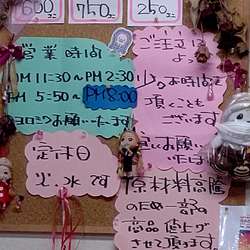 600コ
750コ
250コ
営業時間
AM 11:30~PM 2:30
PM 5:50~PM8:00
ヨロシクお願いいたします
定休日
火.水です
ご注文に
よっ
少々お時間を
頂くことも
ございます
お願い
いたしま
原材料高騰
のため一部
商品値上げ
させて頂きます